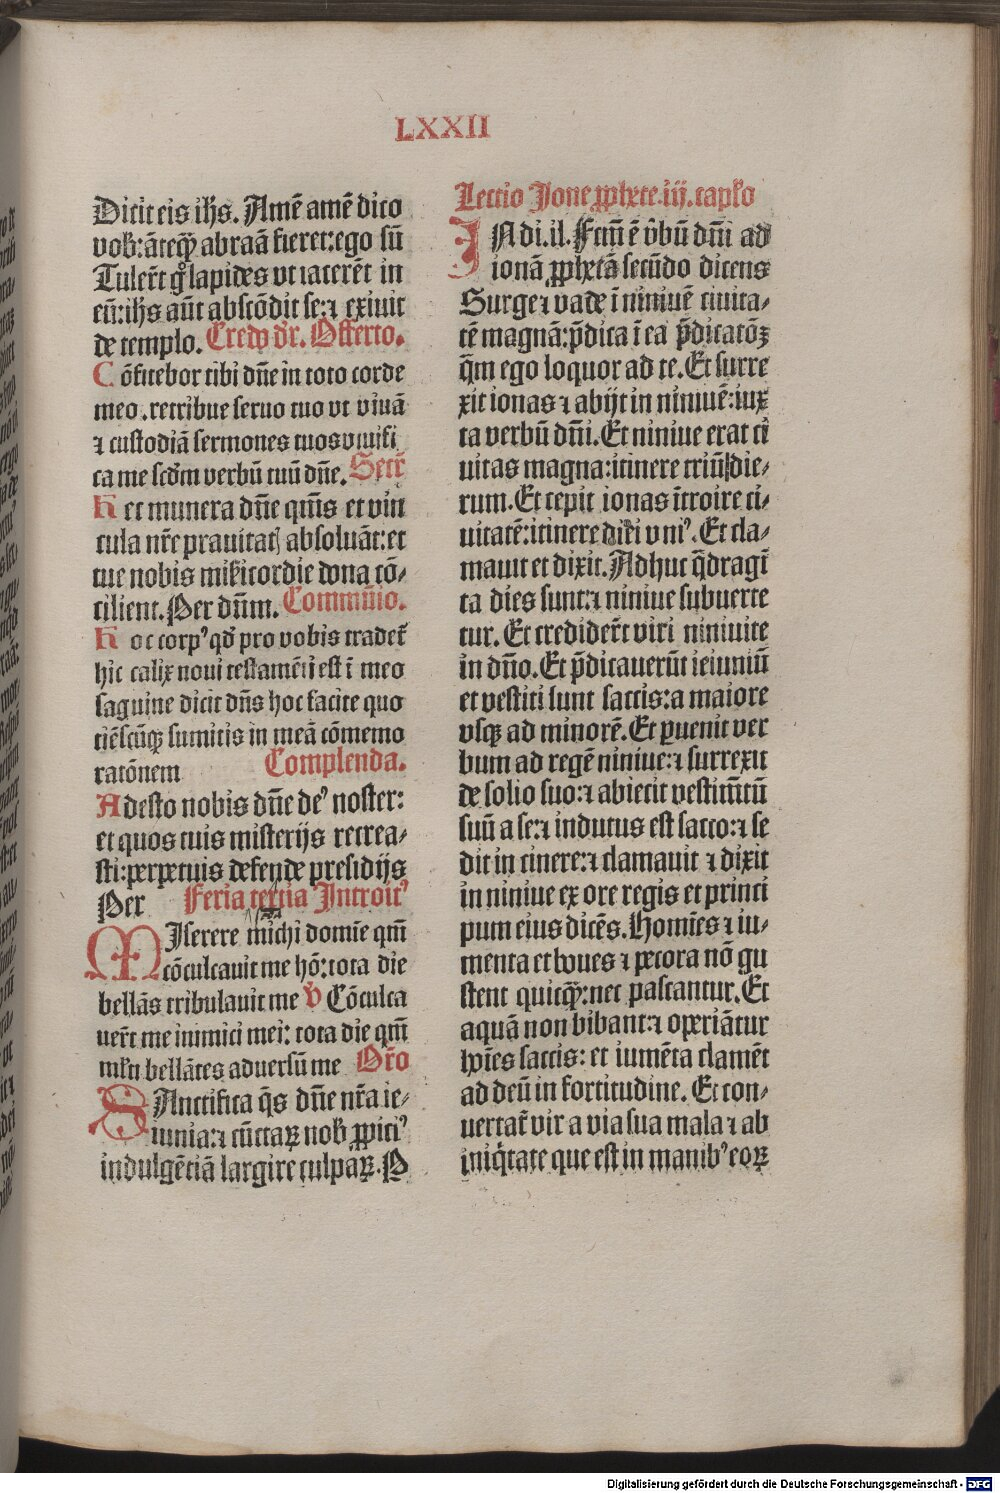 LXXII
Dicit eis ihs. Amē amē dico
vob:ātēqꝫ abraā fieret:ego sū
Tuler̄t gͦ lapides vt iacerēt in
eū:ihs aūt abscōdit se:⁊ exiuit
de templo. Credo dr̄. Offerto.
Cōfitebor tibi dn̄e in toto corde
meo.retribue seruo tuo vt viuā
⁊ custodiā sermones tuos viuifi
ca me scd̄m verbū tuū dn̄e. Secr̄
Hec munera dn̄e qm̄s et vin
cula nr̄e prauitatꝭ absoluāt:et
tue nobis mīcordie dona cō-
cilient. Per dn̄m. Commūio.
Hoc corpꝰ qd̓ pro vobis tradet̄
hic calix noui testamēti est ī meo
saguine dicit dn̄s hoc facite quo
ciēscūqꝫ sumitis in meā cōmemo
ratōnem Complenda.
Adesto nobis dn̄e deꝰ noster:
et quos tuis misterijs recrea-
sti:perpetuis defende presidijs
Per Feria tertia Introitꝰ
MIserere michi domīe qm̄
cōculcauit me hō:tota die
bellās tribulauit me ℣ Cōculca
uer̄t me inimici mei: tota die qm̄
ml̓ti bellātes aduersū me Or̄o
SAnctifica q̄s dn̄e nr̄a ie-
iunia:⁊ cūctaꝝ nob ꝓpiciꝰ
indulgētiā largire culpaꝝ. P
Lectio Jone ꝓphete.iij.capl̓o
IN di.il. Fctm̄ ē v̓bū dn̄i ad
ionā ꝓphetā secūdo dicens
Surge ⁊ vade ī niniuē ciuita-
tē magnā:p̄dica ī ea p̄dicatōꝫ
q̄m ego loquor ad te. Et surre
xit ionas ⁊ abijt in niniuē:iux
ta verbū dn̄i. Et niniue erat ci
uitas magna:itinere triū die-
rum. Et cepit ionas ītroire ci-
uitatē:itinere diei vniꝰ. Et cla-
mauit et dixit. Adhuc q̄dragī
ta dies sunt:⁊ niniue subuerte
tur. Et credider̄t viri niniuite
in dn̄o. Et p̄dicauerūt ieiuniū
et vestiti sunt saccis:a maiore
vsqꝫ ad minorē. Et ꝑuenit ver
bum ad regē niniue:⁊ surrexit
de solio suo:⁊ abiecit vestimn̄tū
suū a se:⁊ indutus est sacco:⁊ se
dit in cinere:⁊ clamauit ⁊ dixit
in niniue ex ore regis et princi
pum eius dicēs. Homīes ⁊ iu-
menta et boues ⁊ pecora nō gu
stent quicqꝫ:nec pascantur. Et
aquā non bibant:⁊ operiātur
hoīes saccis: et iumēta clamēt
ad deū in fortitudine. Et con-
uertat̄ vir a via sua mala ⁊ ab
iniq̓tate que est in manibꝰ eoꝝ
Digitalisierung gefördert durch die Deutsche Forschungsgemeinschaft - DFG